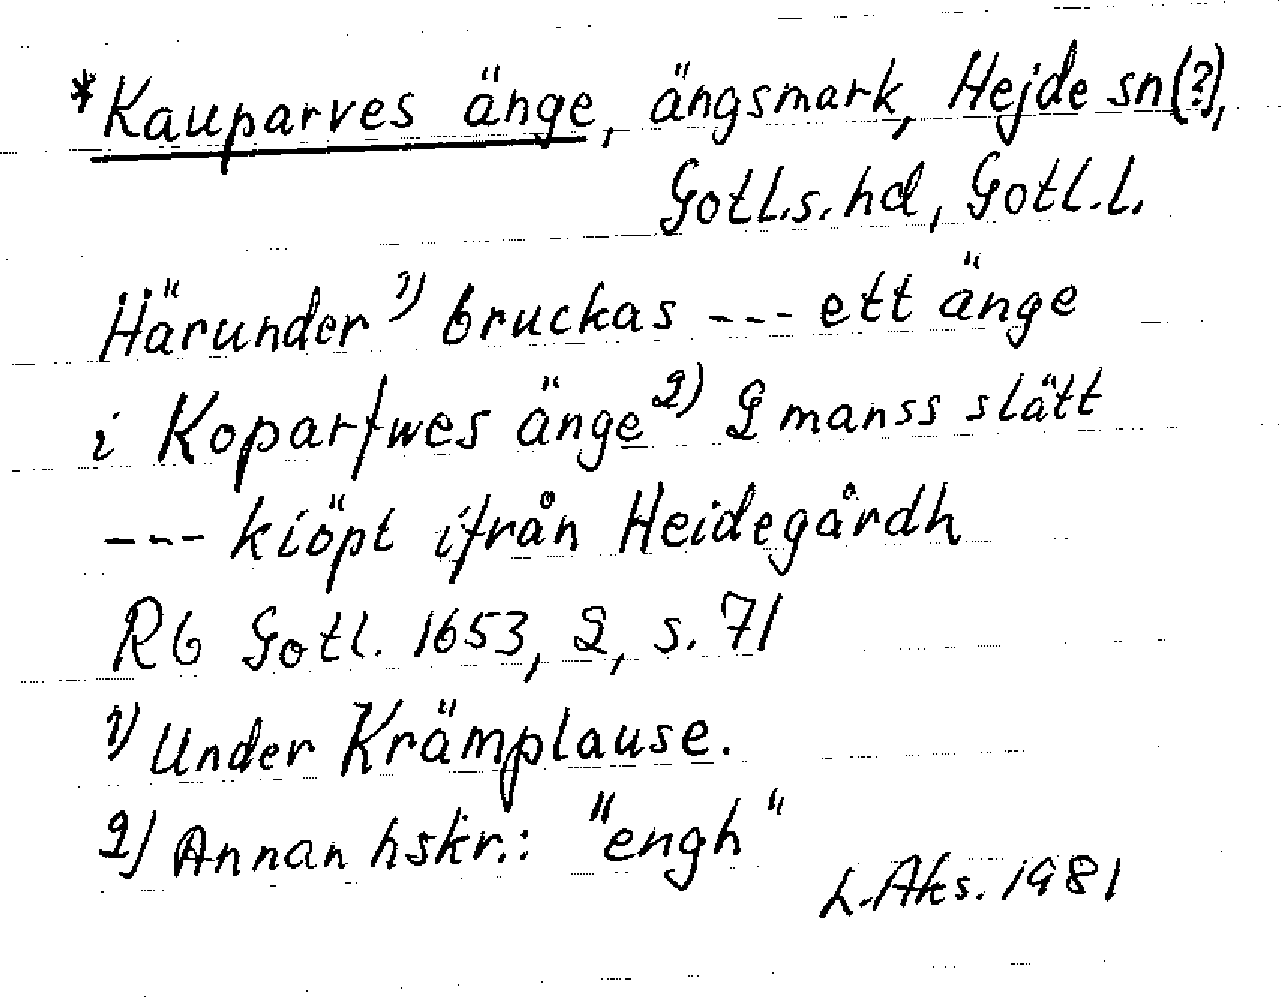 *Kauparves änge, ängsmark, Hejde sn(?),
Gotl.s.hd, Gotl.l.
Härunder 1) bruckas --- ett änge
i Koparfwes änge 2) 2 manss slätt
--- kiöpt ifrån Heidegårdh
Rb Gotl. 1653, 2, s. 71
1) Under Krämplause.
2) Annan hskr.: "engh"
L.Aks. 1981